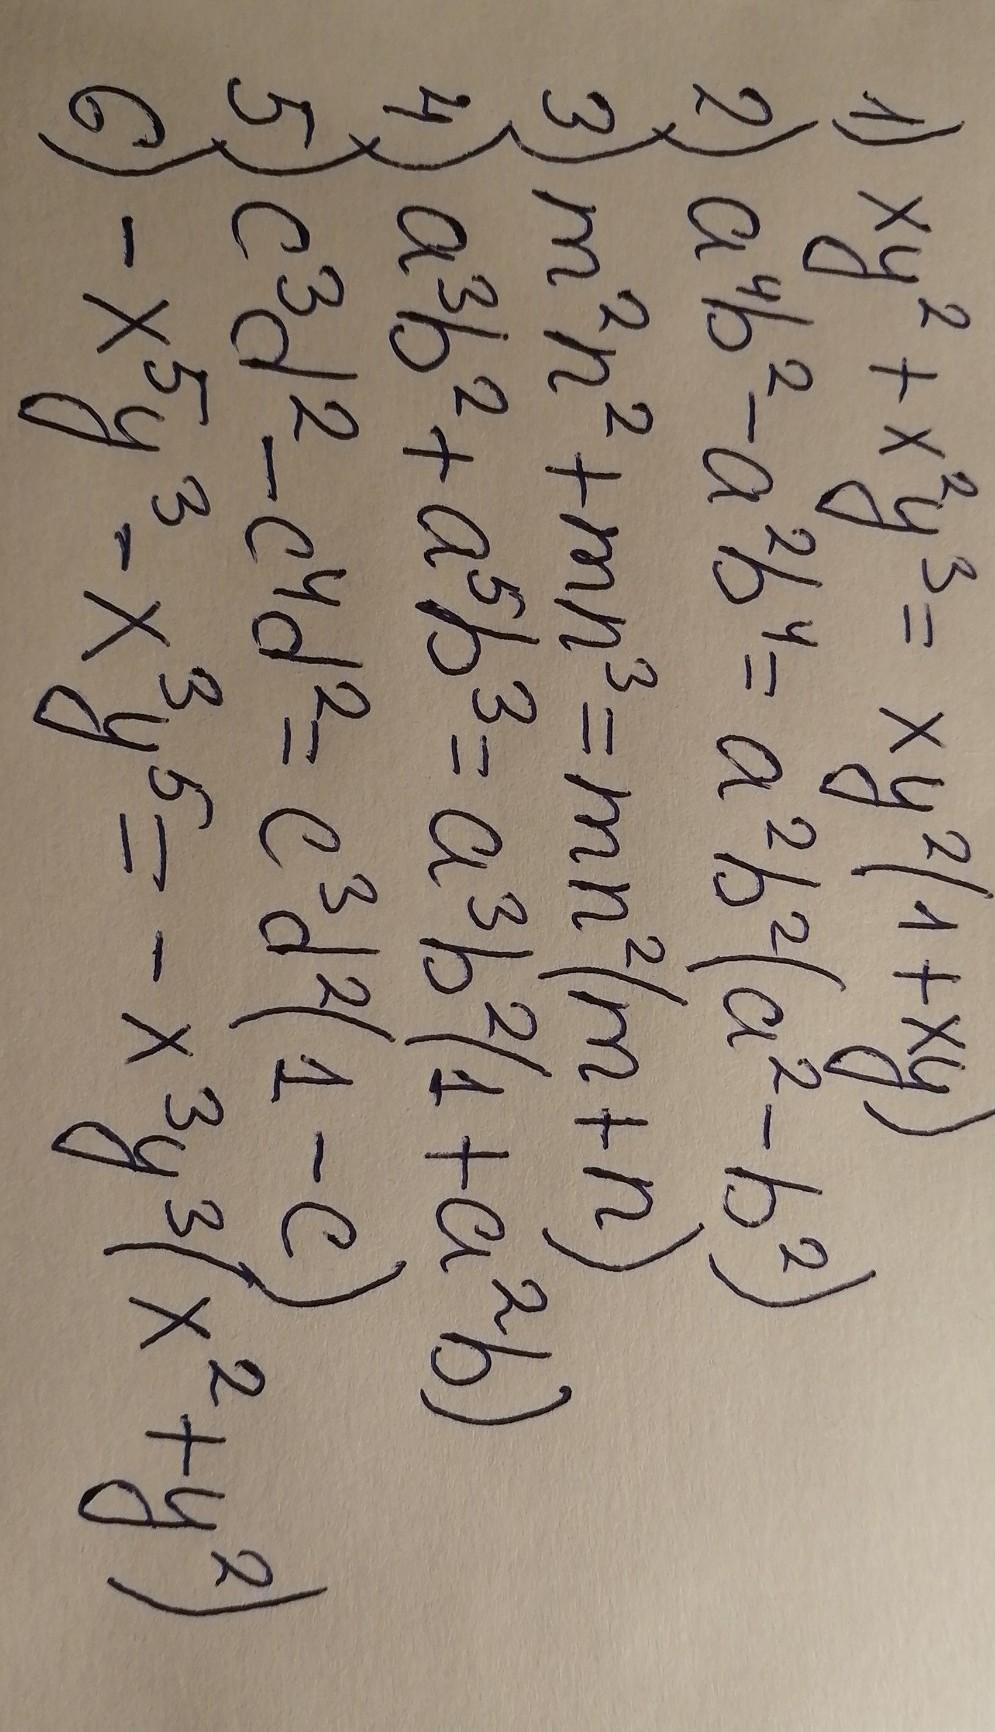 1) xy² + x²y³ = xy²(1 + xy)
2) a⁴b² - a²b⁴ = a²b²(a² - b²)
3) m²n² + mn³ = mn²(m + n)
4) a³b² + a⁵b³ = a³b²(1 + a²b)
5) c³d² - c⁴d² = c³d²(1 - c)
6) - x⁵y³ - x³y⁵ = - x³y³(x² + y²)